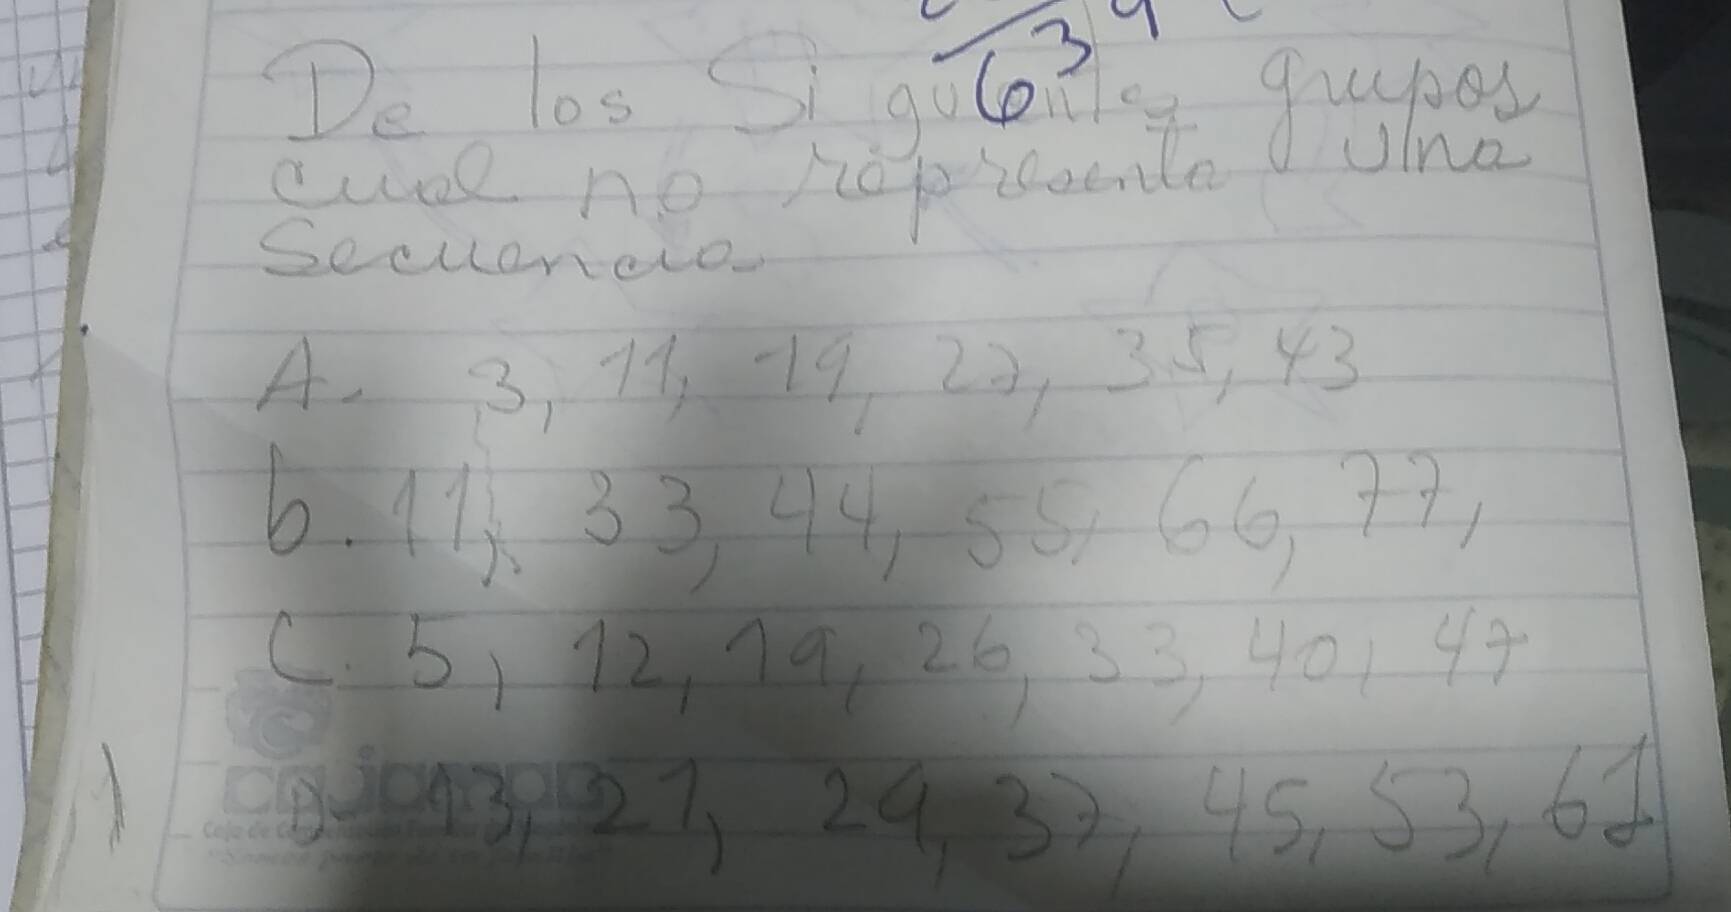 63
De los Siguientes grupos
cual no representa una
Secuencia
A. 3, 11, 19, 27, 35, 43
b. 11, 33, 44, 55, 66, 77,
C. 5, 12, 19, 26, 33, 40, 47
D. 13, 21, 29, 37, 45, 53, 61